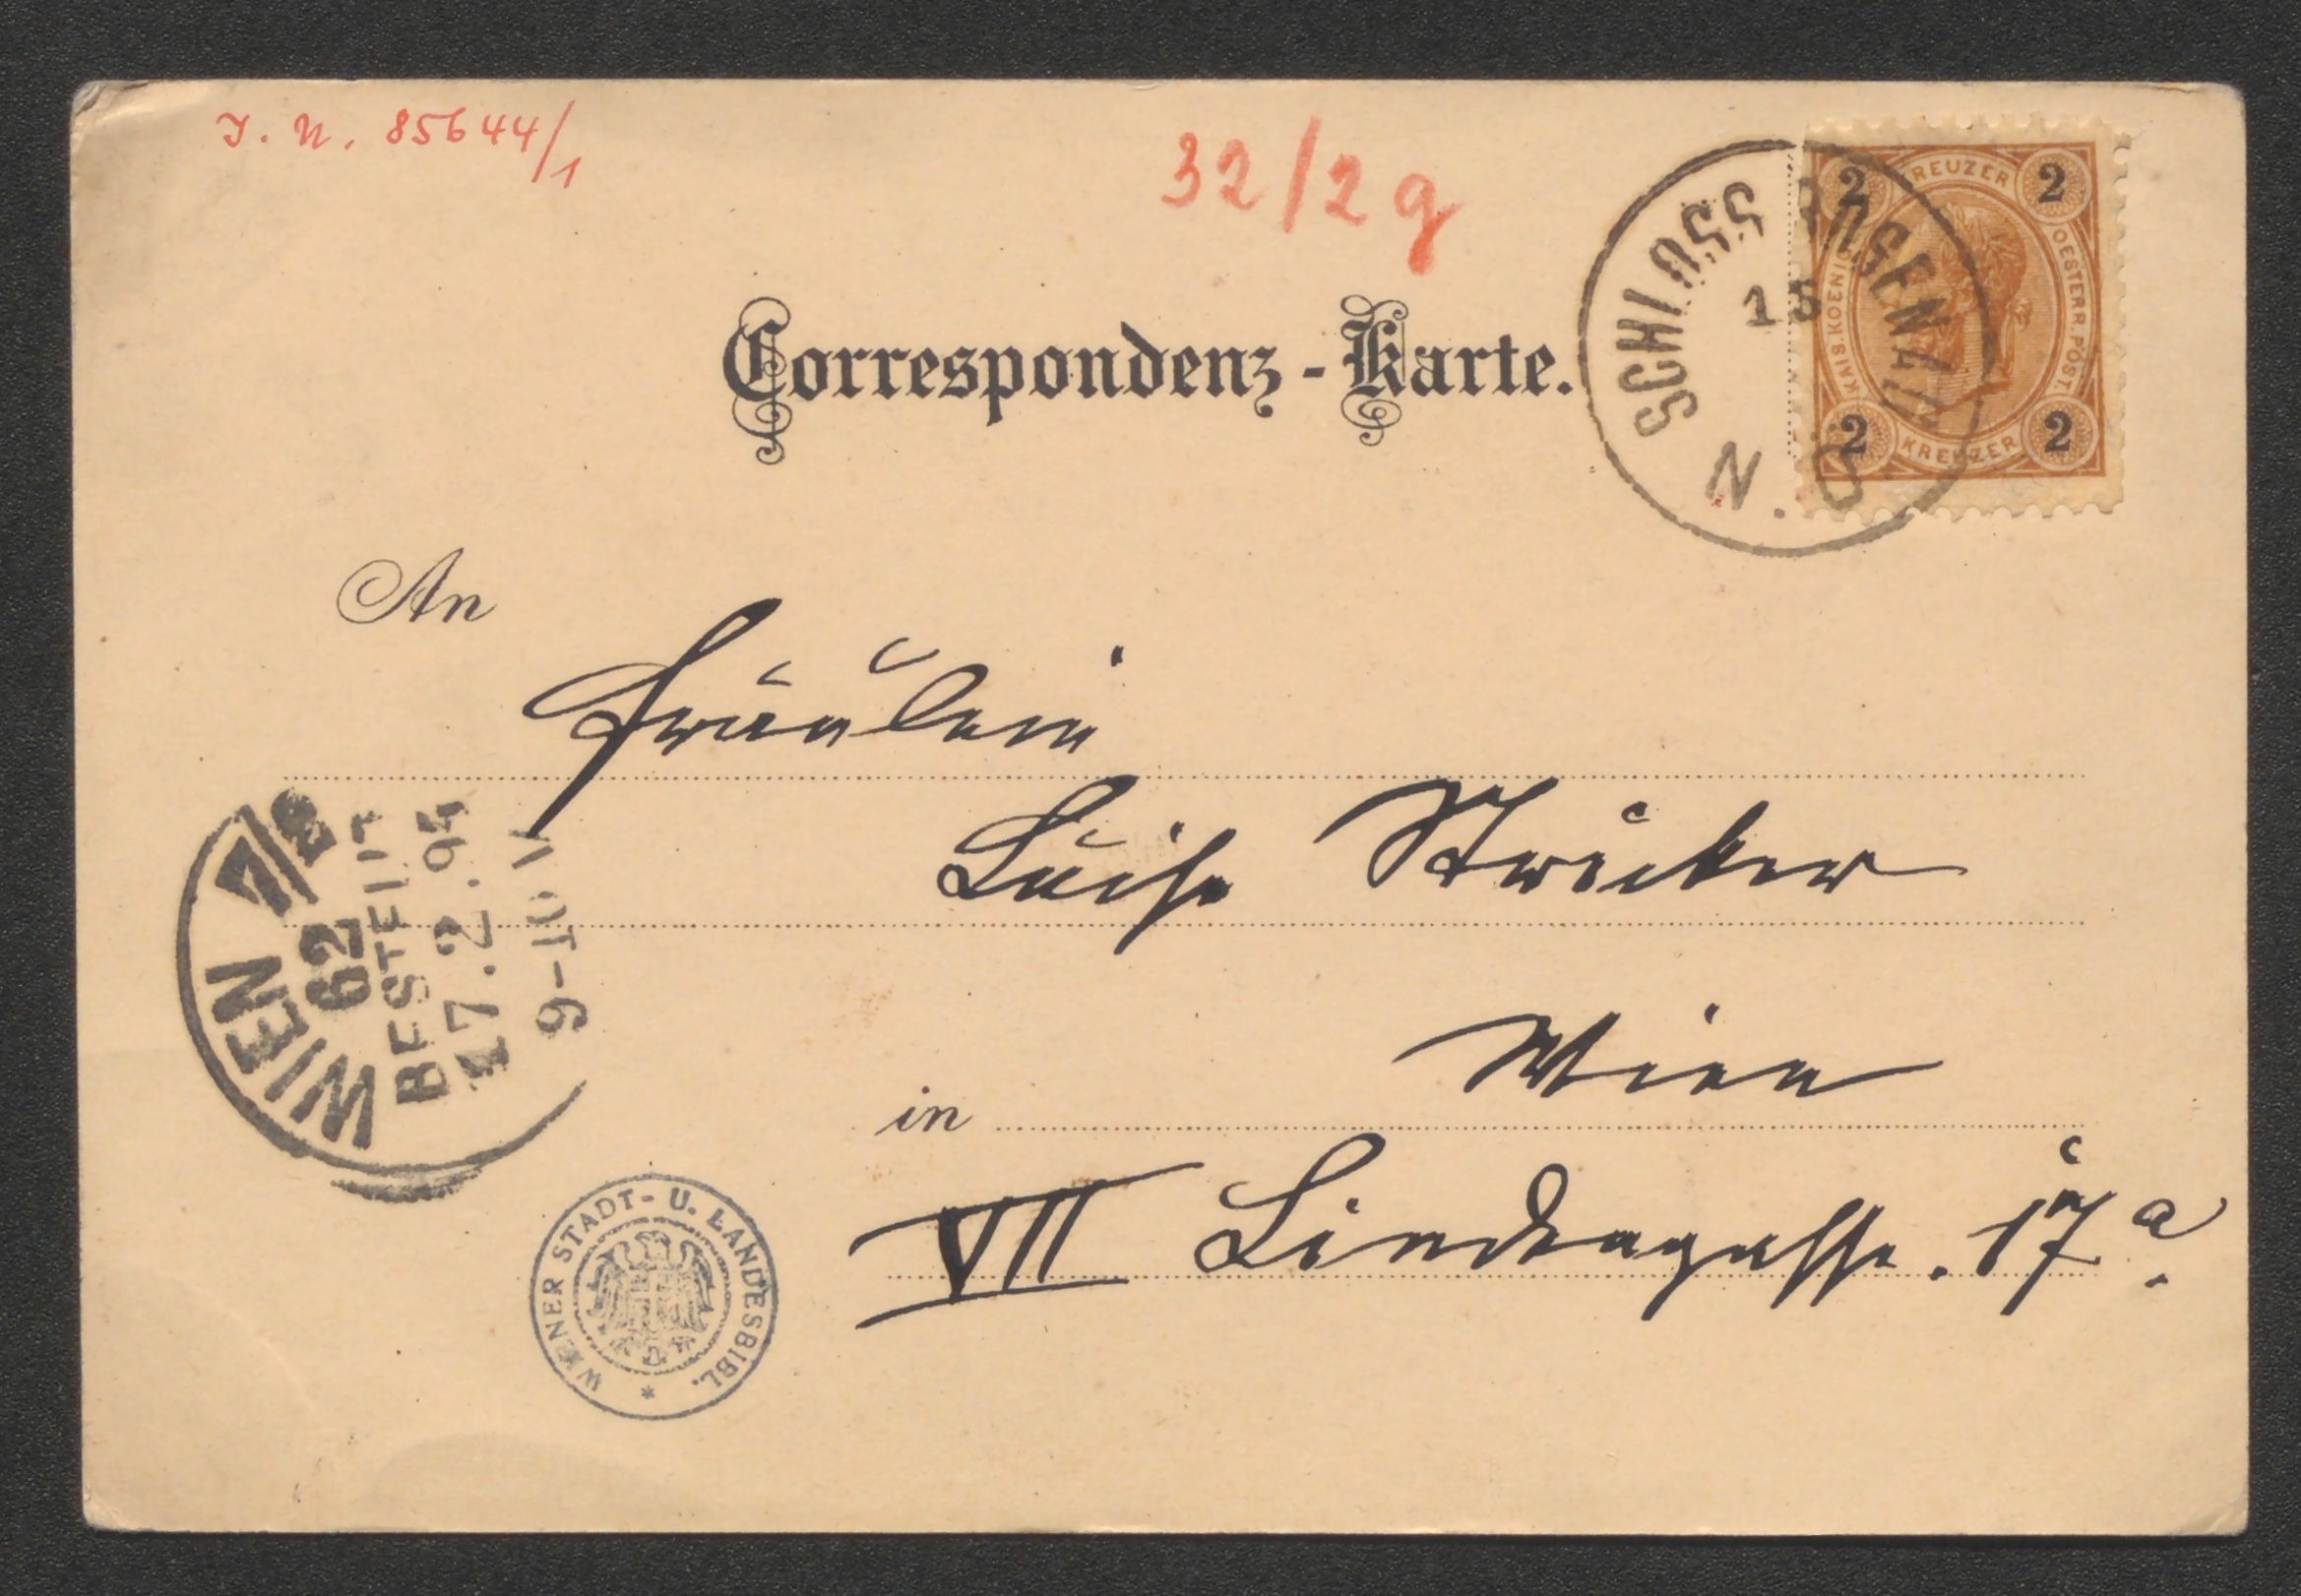 I. N. 85644/1
32/2 g
2 KREUZER 2
KAIS. KOENIGL. OESTERR. POST.
2 KREUZER 2
SCHLOSS ROSENAU
15
N. Ö
Correspondenz-Karte.
An
Fräulein
Luise Stricker
in Wien
VII Lindengasse. 17a.
WIEN 7/2
62
BESTELLT
17.2.94
9-10 V
WIENER STADT- U. LANDESBIBL. *